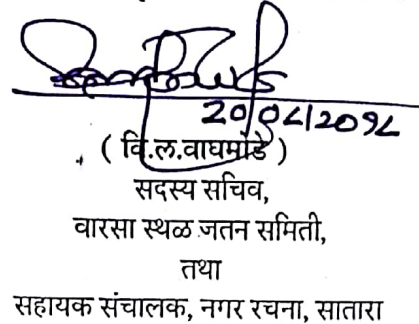 २०/०८/२०१८
( वि.ल.वाघमोडे )
सदस्य सचिव,
वारसा स्थळ जतन समिती,
तथा
सहायक संचालक, नगर रचना, सातारा